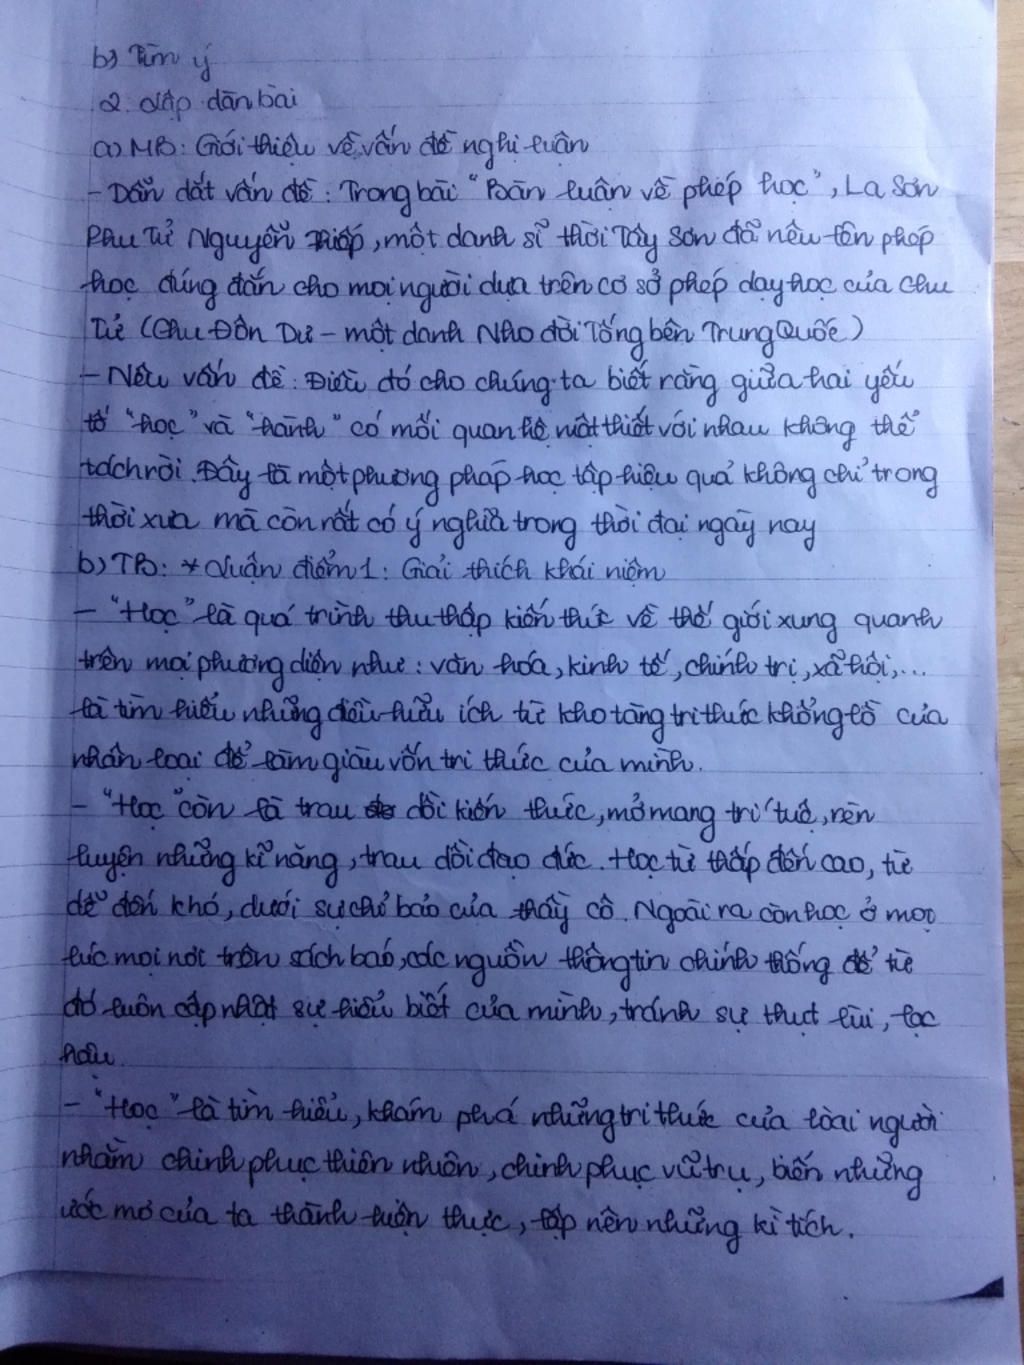 b) Tìm ý
2. Lập dàn bài
a) MB: Giới thiệu về vấn đề nghị luận
- Dẫn dắt vấn đề: Trong bài "Bàn luận về phép học", La Sơn
Phu Tử Nguyễn Thiếp, một danh sĩ thời Tây Sơn đã nêu lên phép
học đúng đắn cho mọi người dựa trên cơ sở phép dạy học của Chu
Tử (Chu Đôn Dư - một danh Nho đời Tống bên Trung Quốc)
- Nêu vấn đề: Điều đó cho chúng ta biết rằng giữa hai yếu
tố "học" và "hành" có mối quan hệ mật thiết với nhau không thể
tách rời. Đây là một phương pháp học tập hiệu quả không chỉ trong
thời xưa mà còn rất có ý nghĩa trong thời đại ngày nay
b) TB: * Luận điểm 1: Giải thích khái niệm
- "Học" là quá trình thu thập kiến thức về thế giới xung quanh
trên mọi phương diện như: văn hóa, kinh tế, chính trị, xã hội,...
là tìm hiểu những điều hữu ích từ kho tàng tri thức khổng lồ của
nhân loại để làm giàu vốn tri thức của mình.
- "Học" còn là trau dồi kiến thức, mở mang trí tuệ, rèn
luyện những kĩ năng, trau dồi đạo đức. Học từ thấp đến cao, từ
dễ đến khó, dưới sự chỉ bảo của thầy cô. Ngoài ra còn học ở mọi
lúc mọi nơi trên sách báo, các nguồn thông tin chính thống để từ
đó luôn cập nhật sự hiểu biết của mình, tránh sự thụt lùi, lạc
hậu.
- "Học" là tìm hiểu, khám phá những tri thức của loài người
nhằm chinh phục thiên nhiên, chinh phục vũ trụ, biến những
ước mơ của ta thành hiện thực, lập nên những kì tích.